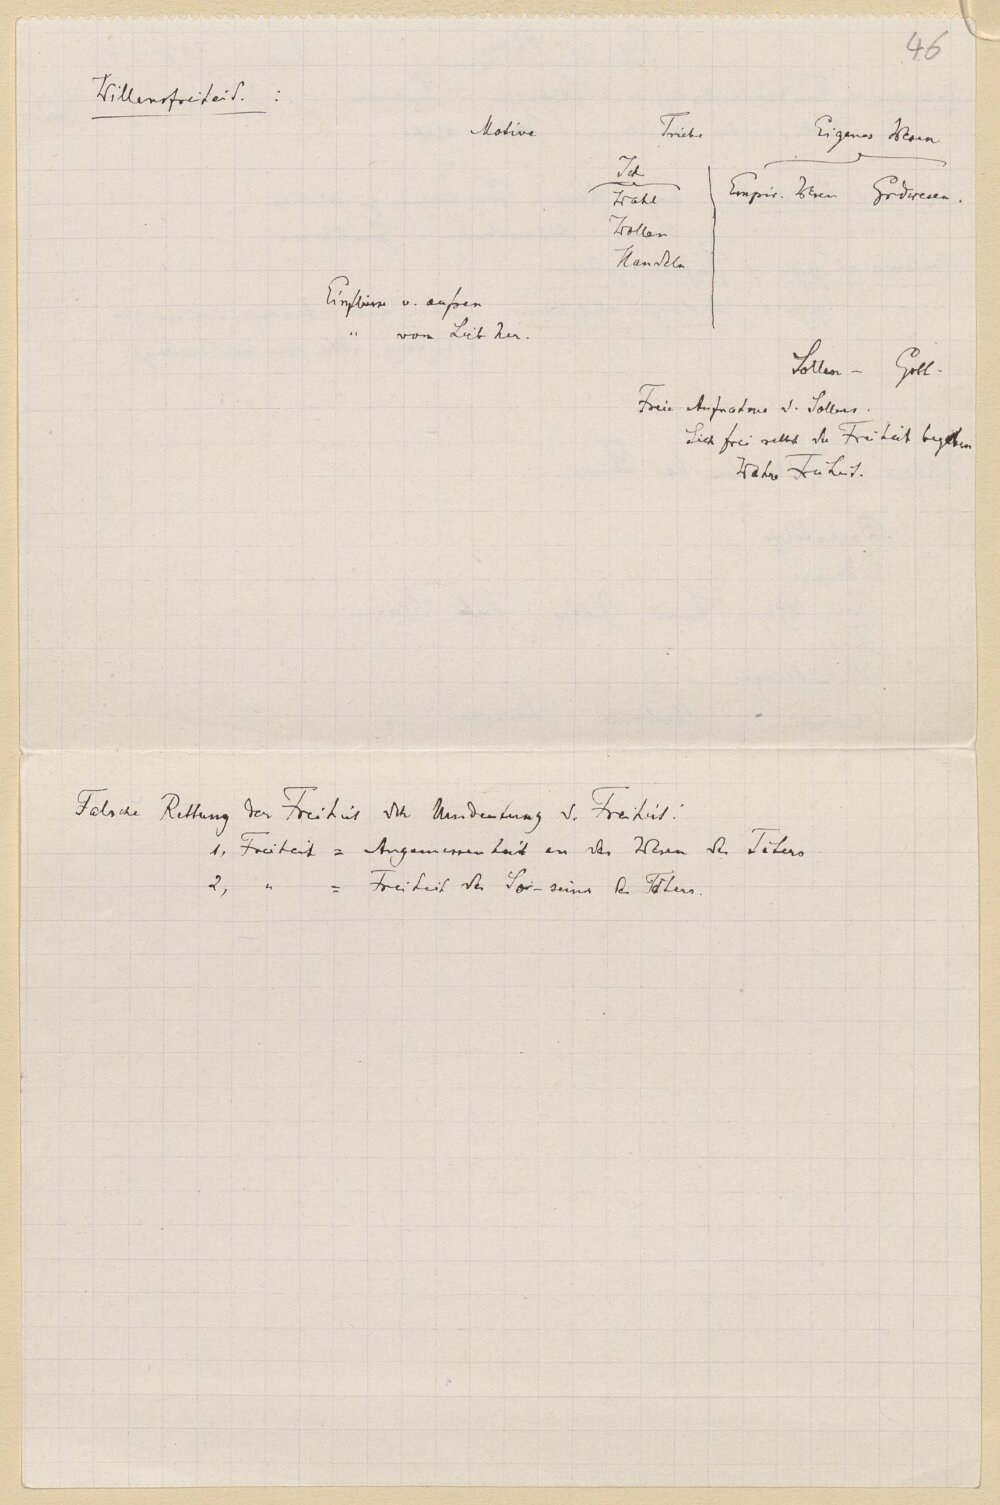 46
Willensfreiheit. :
Motive Triebe Eigenes Wesen
Ich
Wahl Empir. Wesen Grdwesen.
Wollen
Handeln
Einflüsse v. aussen
" vom Leib her.
Sollen - Gott.
Freie Aufnahme d. Sollens.
Sich frei selbst der Freiheit begeben
Wahre Freiheit.
Falsche Rettung der Freiheit dch Umdeutung d. Freiheit:
1, Freiheit = Angemessenheit an das Wesen des Täters
2, " = Freiheit des So-seins des Täters.